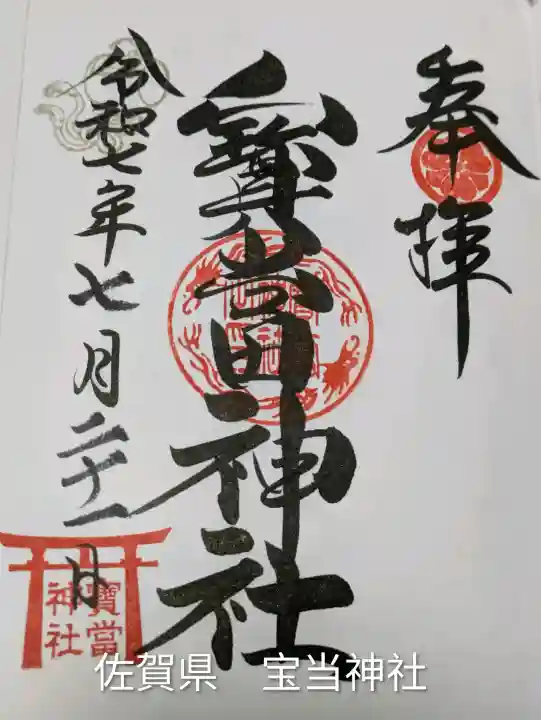 奉拝
寶當神社
令和七年七月二十一日
寶當
神社
佐賀県　宝当神社